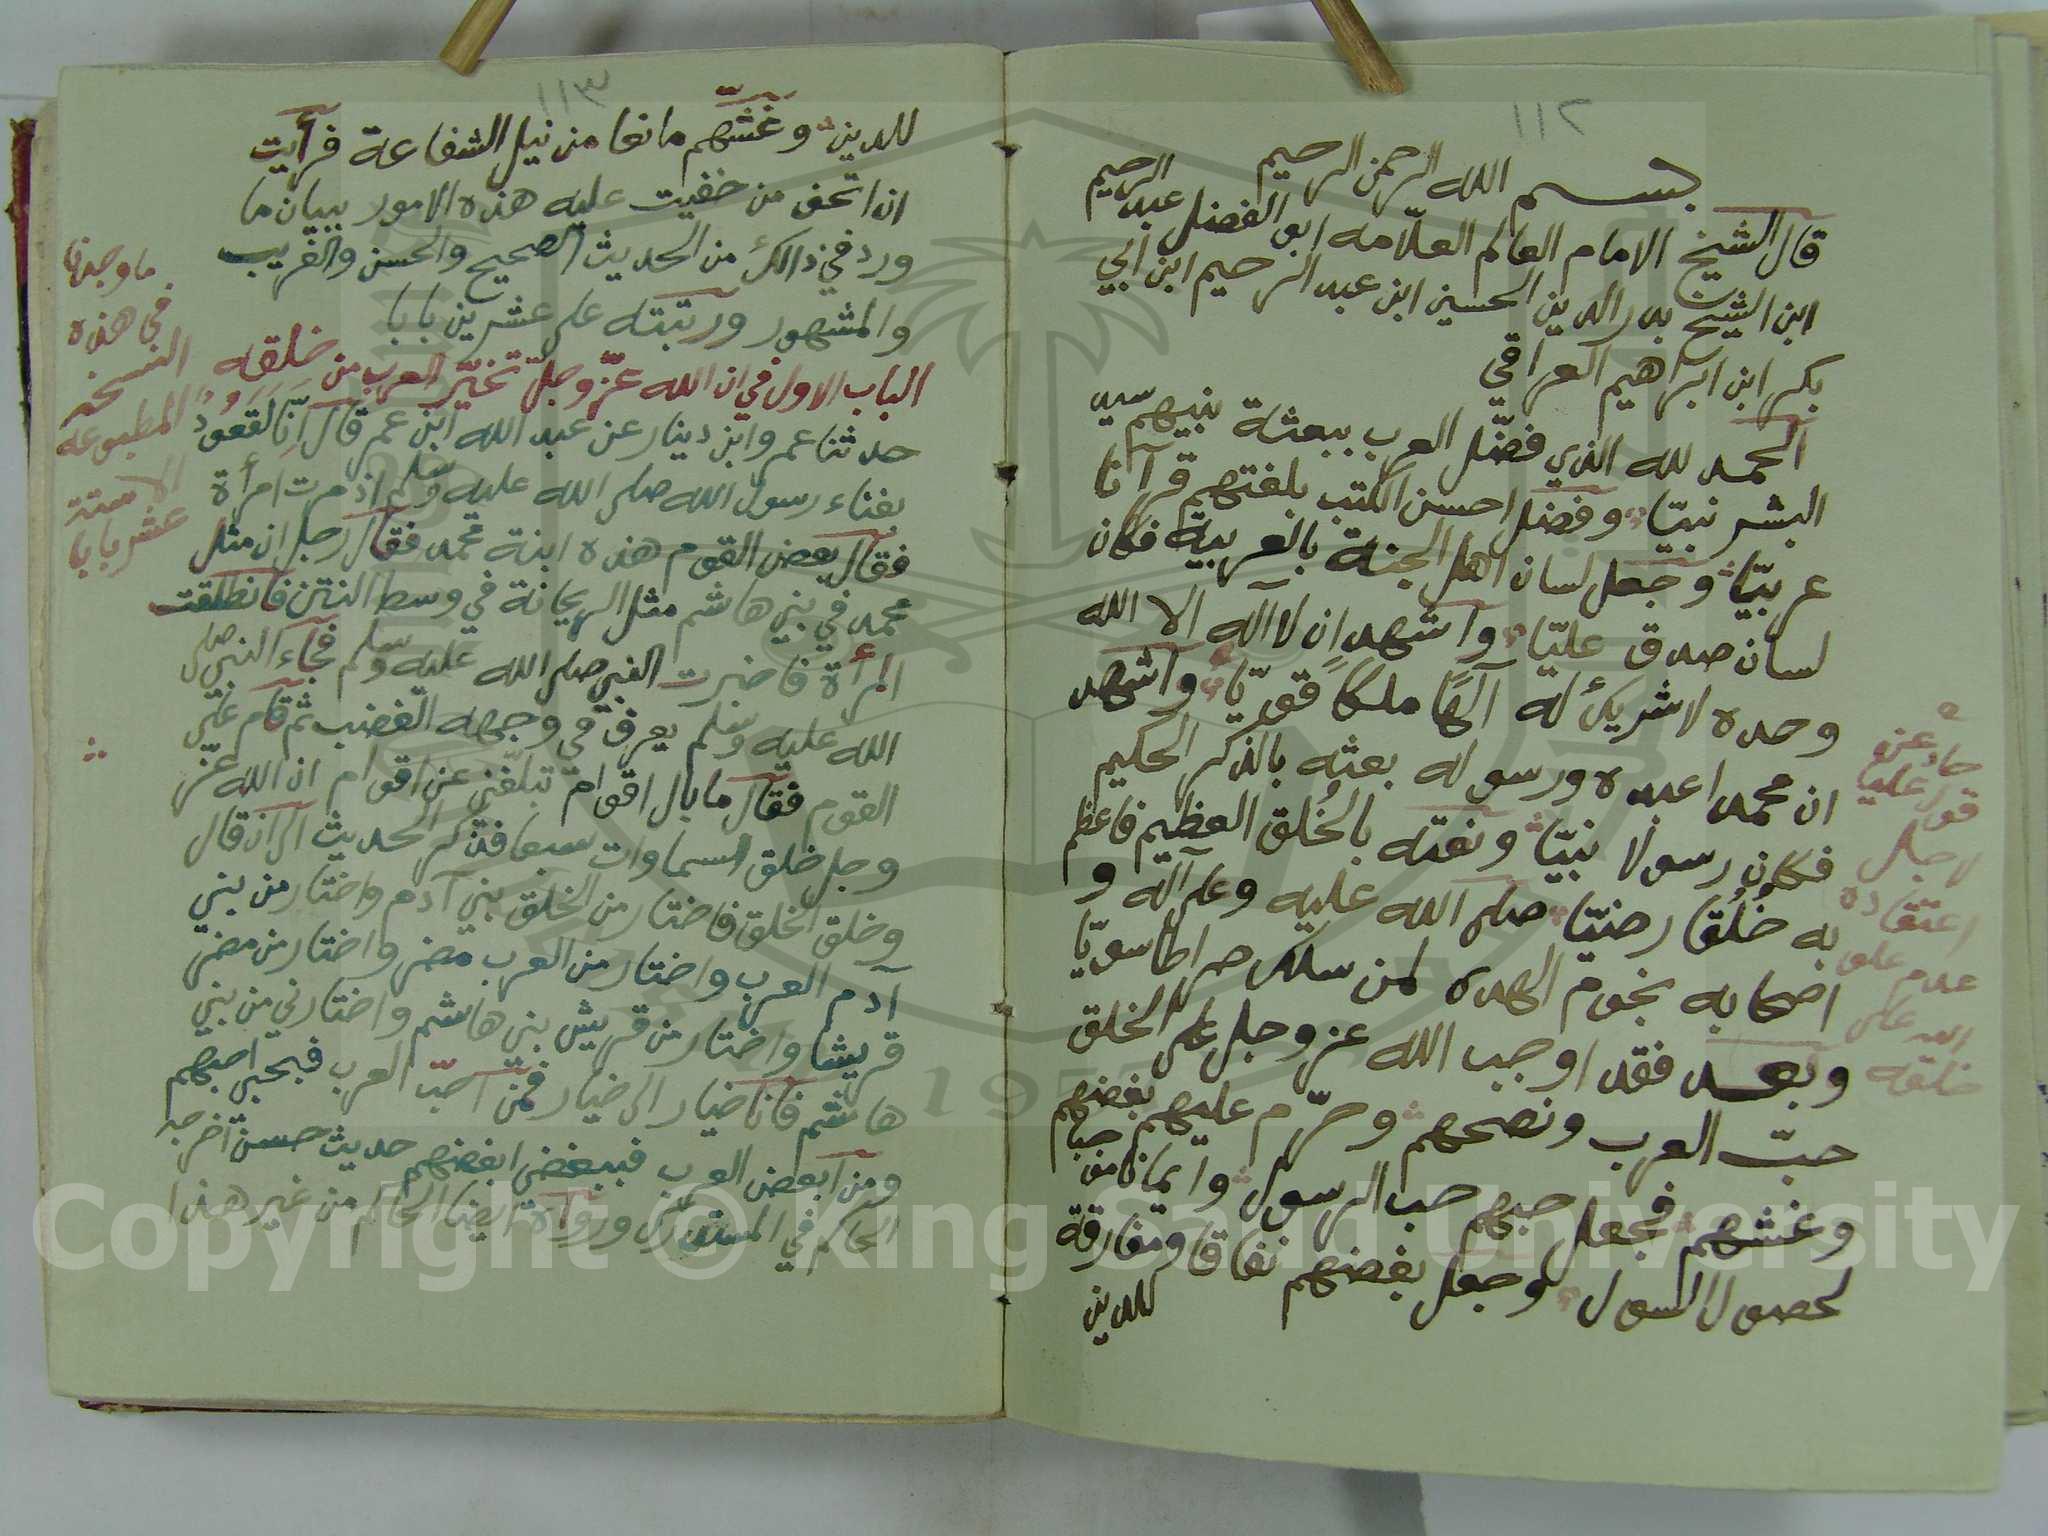 ١١٢
بسم الله الرحمن الرحيم
قال الشيخ الامام العالم العلّامه ابو الفضل عبد الرحيم
ابن الشيخ بدر الدين الحسين ابن عبد الرحيم ابن ابي
بكر ابن ابراهيم العراقي
الحمد لله الذي فضّل العرب ببعثة نبيهم سيد
البشر نبيّا وفضل احسن الكتب بلغتهم قرآنا
عربيّا وجعل لسان اهل الجنة بالعربية فكان
لسان صدق عليّا واشهد ان لا آله الا الله
وحده لا شريك له آلهًا ملكًا قويّا واشهد
ان محمدا عبده ورسوله بعثه بالذكر الحكيم
فكان رسولا نبيّا ونعته بالخُلق العظيم فاعظم
به خُلُقا رضيّا صلى الله عليه وعلى آله و
اصحابه نجوم الهدى لمن سلك صراطا سويّا
وبعد فقد اوجب الله عز وجل على الخلق
حبّ العرب ونصحهم وحرّم عليهم بغضهم
وغشهم فجعل حبهم حب الرسول وايمانا من حباهم
لحصول السول وجعل بغضهم نفاقا ومفارقة
للدين
قول عليا
لاجل
اعتقاده
عدم علو
الله على
خلقه
١١٣
للدين وغشّهم مانعا من نيل الشفاعة فرأيت
ان اتحف من خفيت عليه هذه الامور ببيان ما
ورد في ذالك من الحديث الصحيح والحسن والغريب
والمشهور ورتبته على عشرين بابا
الباب الاول في ان الله عزّ وجلّ تخيّر العرب من خلقه
حدثنا عمرو ابن دينار عن عبد الله ابن عمر قال انّا لقعودٌ
بفناء رسول الله صلى الله عليه وسلم اذ مرت امرأة
فقال بعض القوم هذه ابنة محمد فقال رجل ان مثل
محمد في بني هاشم مثل الريحانة في وسط النتن فانطلقت
المرأة فاخبرت النبي صلى الله عليه وسلم فجاء النبي صلى
الله عليه وسلم يعرف في وجهه الغضب ثم قام على
القوم فقال ما بال اقوام تبلّغني عن اقوام ان الله عزّ
وجل خلق السماوات سبعا فذكر الحديث الى ان قال
وخلق الخلق فاختار من الخلق بني آدم واختار من بني
آدم العرب واختار من العرب مضر واختار من مضر
قريشا واختار من قريش بني هاشم واختارني من بني
هاشم فانا خيار الى خيار فمن احبّ العرب فبحبي احبهم
ومن ابغض العرب فببغضي ابغضهم حديث حسن اخرجه
الحاكم في المستدرك ورواه ايضا الحاكم من غير هذا
ما وجدنا
في هذه
النسخه
المطبوعه
الا ستة
عشر بابا
Copyright © King Saud University
1957